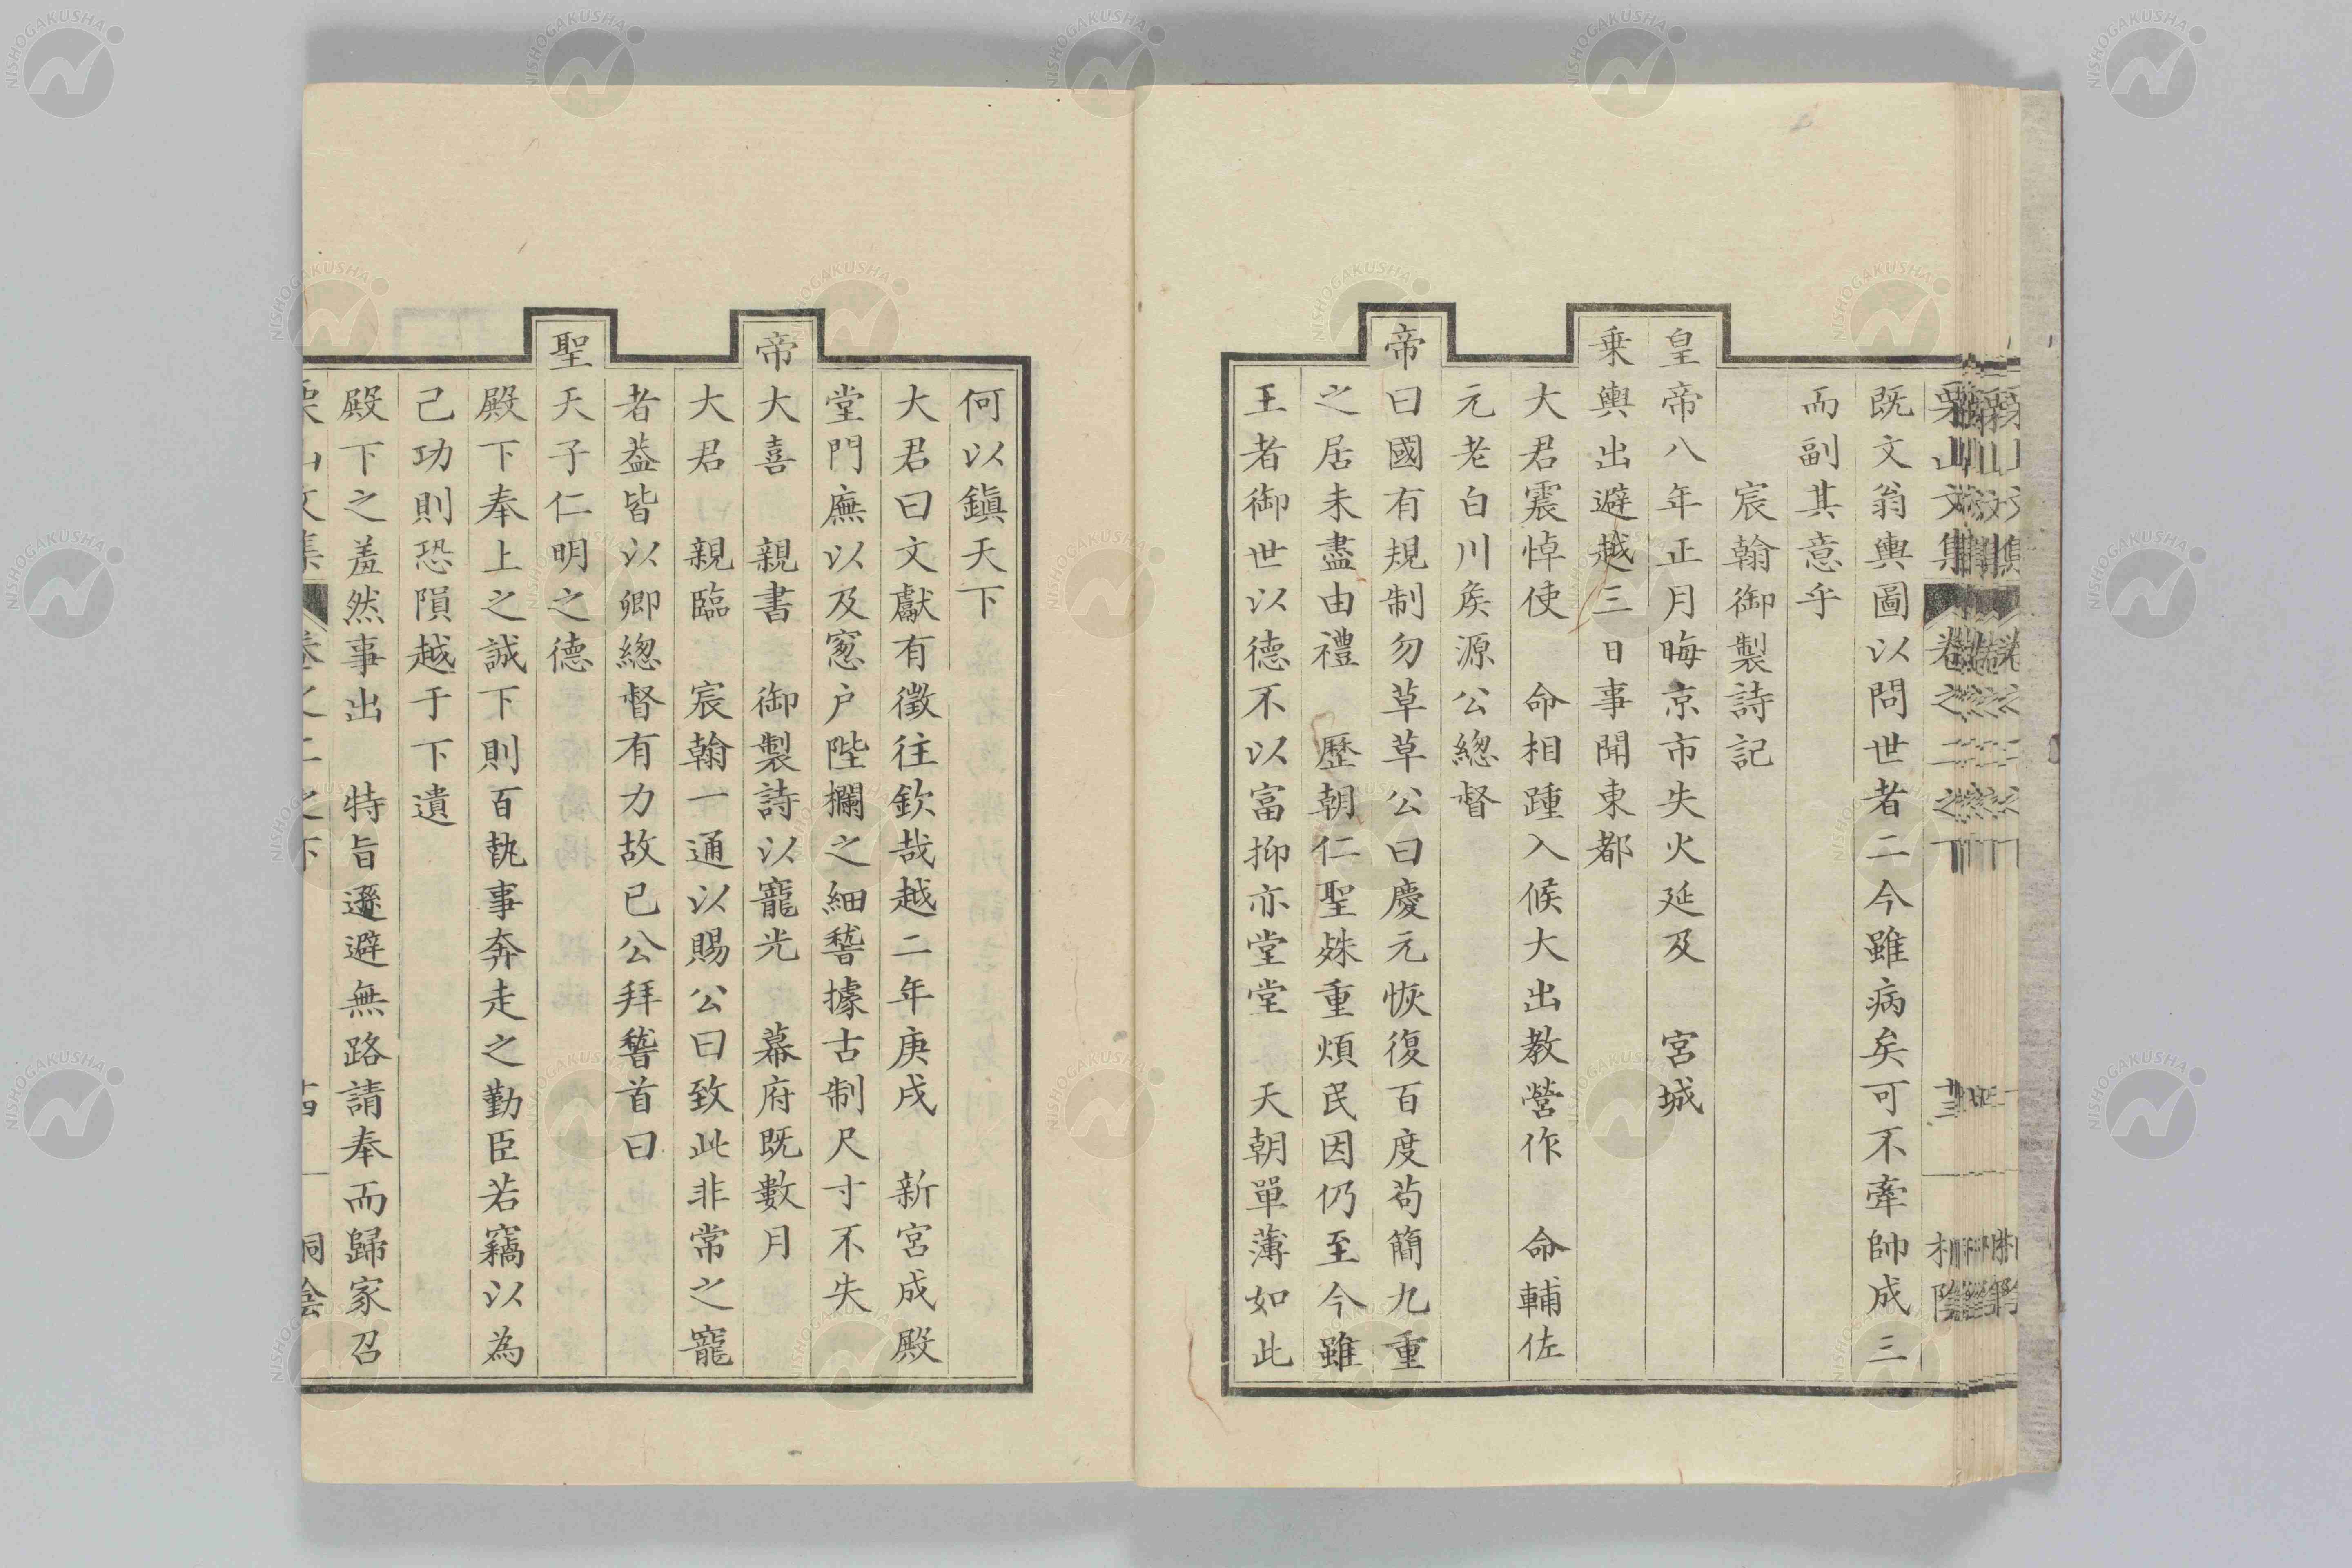 既文翁輿圖以問世者二今雖病矣可不牽帥成三
而副其意乎
宸翰御製詩記
皇帝八年正月晦京市失火延及 宮城
乗輿出避越三日事聞東都
大君震悼使 命相踵入候大出教營作 命輔佐
元老白川矦源公緫督
帝曰國有規制勿草草公曰慶元恢復百度苟簡九重
之居未盡由禮 歷朝仁聖姝重煩民因仍至今雖
王者御世以德不以富抑亦堂堂 天朝單薄如此
何以鎭天下
大君曰文獻有徵往欽哉越二年庚戌 新宮成殿
堂門廡以及窓户陛欄之細瞽據古制尺寸不失
帝大喜 親書 御製詩以寵光 幕府既數月
大君 親臨 宸翰一通以賜公曰致此非常之寵
者葢皆以卿緫督有力故已公拜䭬首曰
聖天子仁明之德
殿下奉上之誠下則百執事奔走之勤臣若竊以為
己功則恐隕越于下遺
殿下之羞然事出 特旨遜避無路請奉而歸家召
栗山文集 卷之二之下
NISHOGAKUSHA